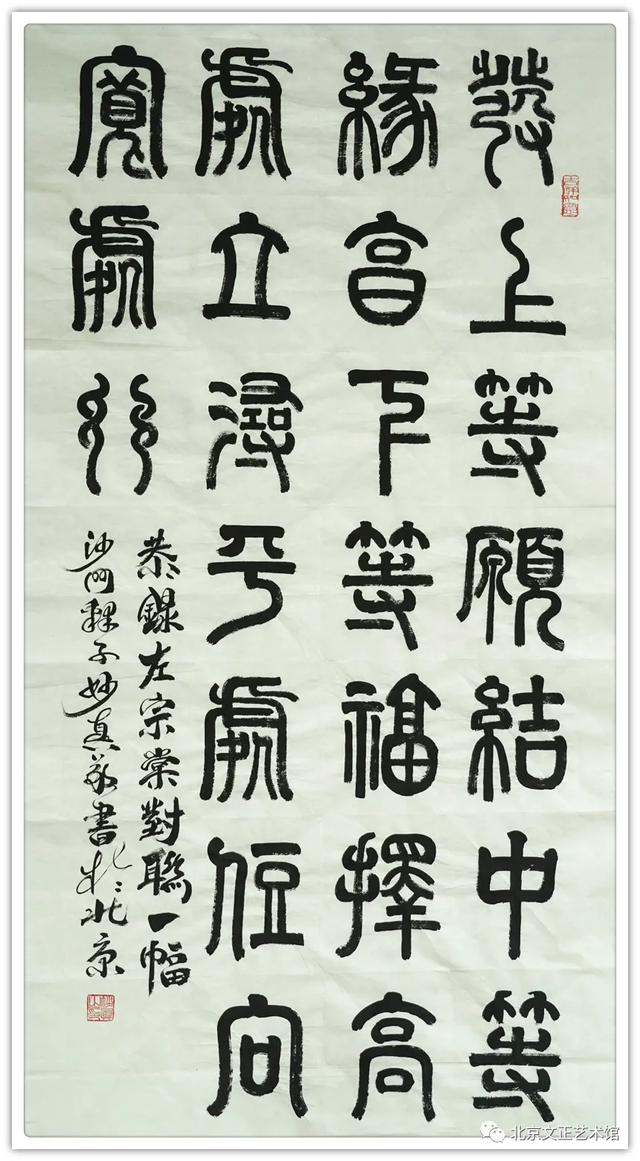 發上等願結中等
緣享下等福擇高
處立尋平處住向
寬處行
恭錄左宗棠對聯一幅
沙門釋子妙真敬書於北京
北京文正艺术馆